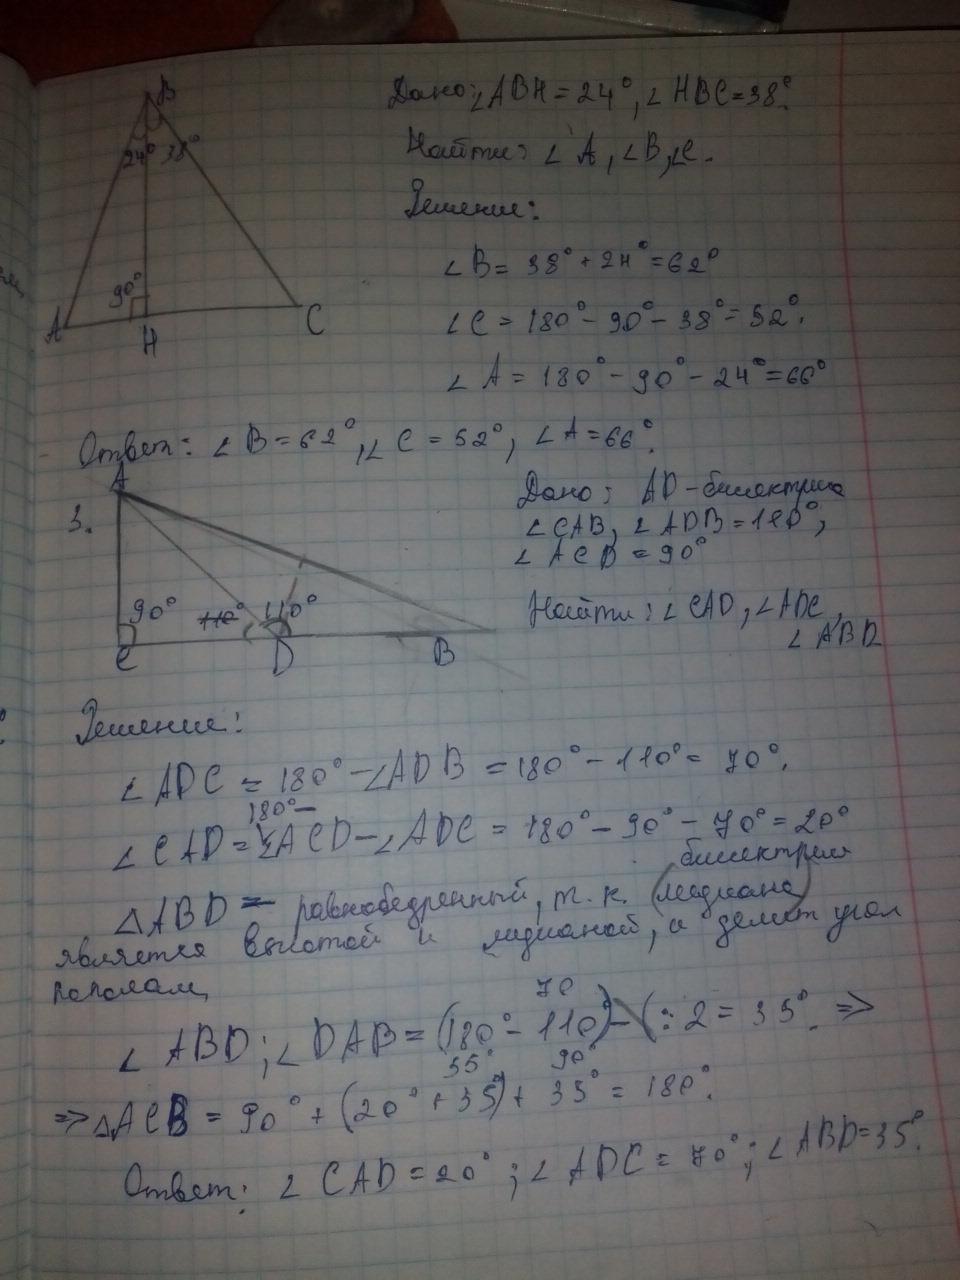 B
24° 38°
90°
A
H
C
Дано: ∠ABH = 24°, ∠HBC = 38°.
Найти: ∠A, ∠B, ∠C.
Решение:
∠B = 38° + 24° = 62°
∠C = 180° - 90° - 38° = 52°.
∠A = 180° - 90° - 24° = 66°
Ответ: ∠B = 62°, ∠C = 52°, ∠A = 66°.
3.
A
90°
110° 110°
C
D
B
Дано: AD - биссектриса
∠CAB, ∠ADB = 110°,
∠ACD = 90°
Найти: ∠CAD, ∠ADC,
∠ABD
Решение:
∠ADC = 180° - ∠ADB = 180° - 110° = 70°.
180° -
∠CAD = ∠ACD - ∠ADC = 180° - 90° - 70° = 20°
биссектриса
△ABD - равнобедренный, т. к. (медиана)
является высотой и медианой, и делит угол
пополам
70
∠ABD; ∠DAB = (180° - 110°) : 2 = 35°. ⇒
55° 90°
⇒ △ACB = 90° + (20° + 35°) + 35° = 180°.
Ответ: ∠CAD = 20°; ∠ADC = 70°; ∠ABD = 35°.